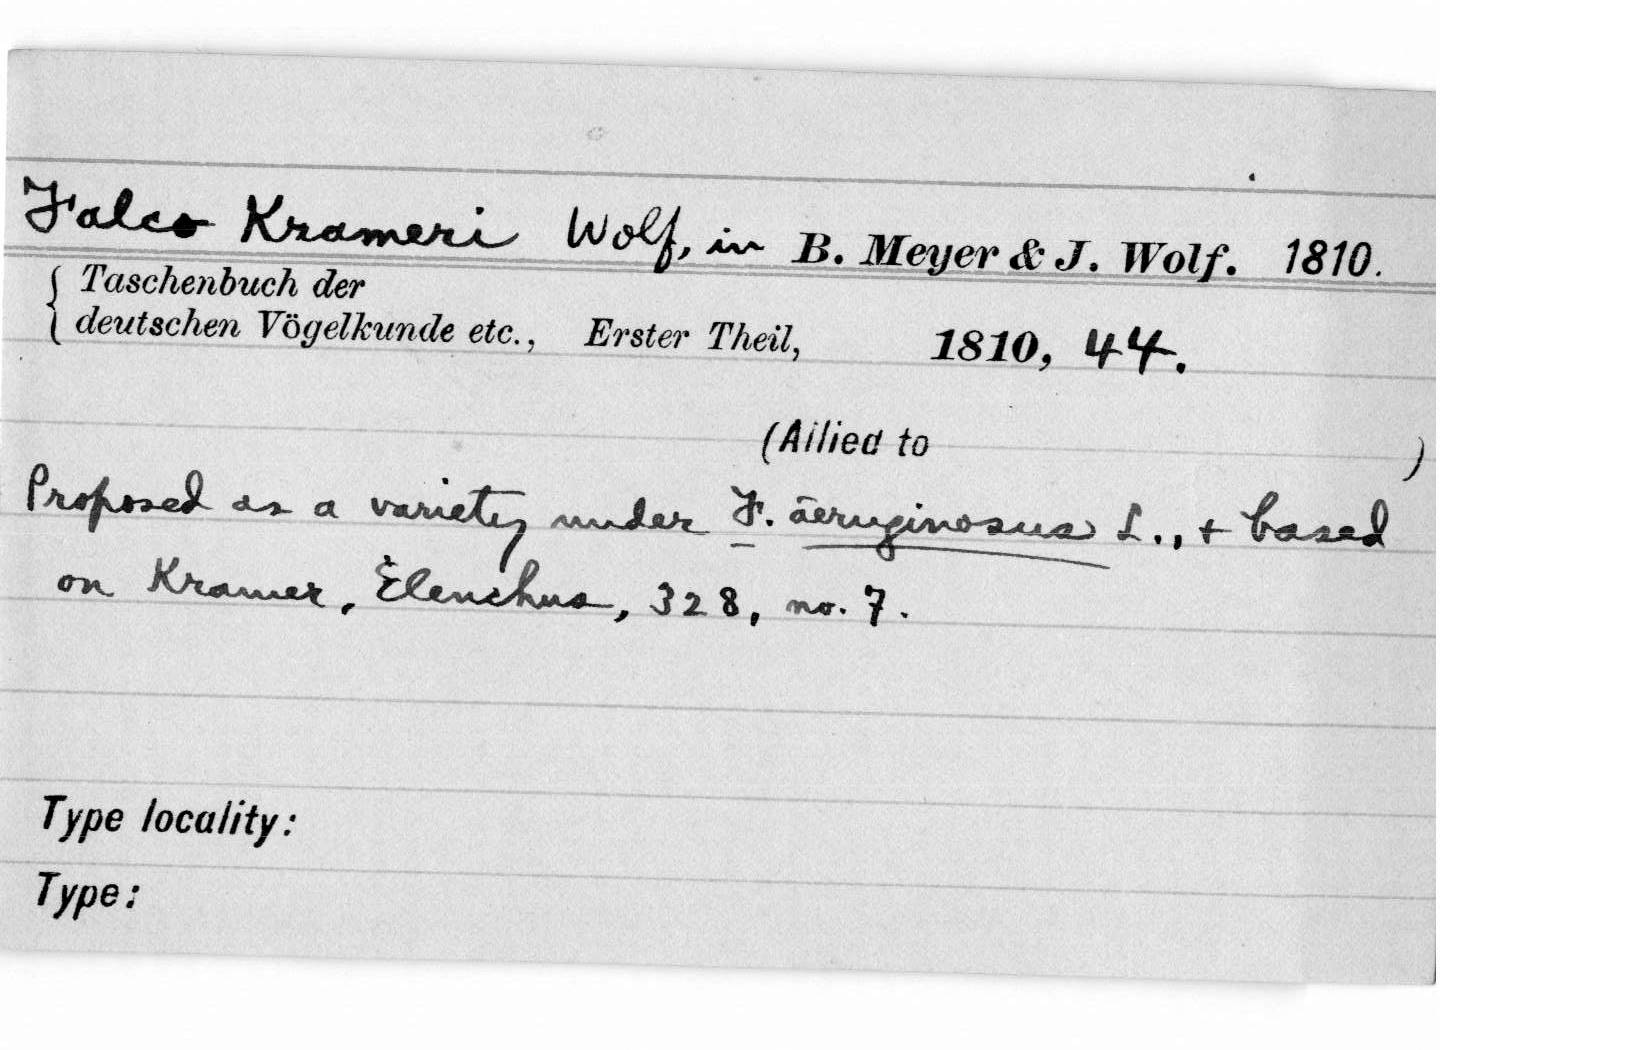 Falco Krameri Wolf, in B. Meyer & J. Wolf. 1810.
{ Taschenbuch der
deutschen Vögelkunde etc., Erster Theil, 1810, 44.
(Allied to )
Proposed as a variety under F. äeruginosus L., + based
on Kramer, Elenchus, 328, no. 7.
Type locality:
Type: